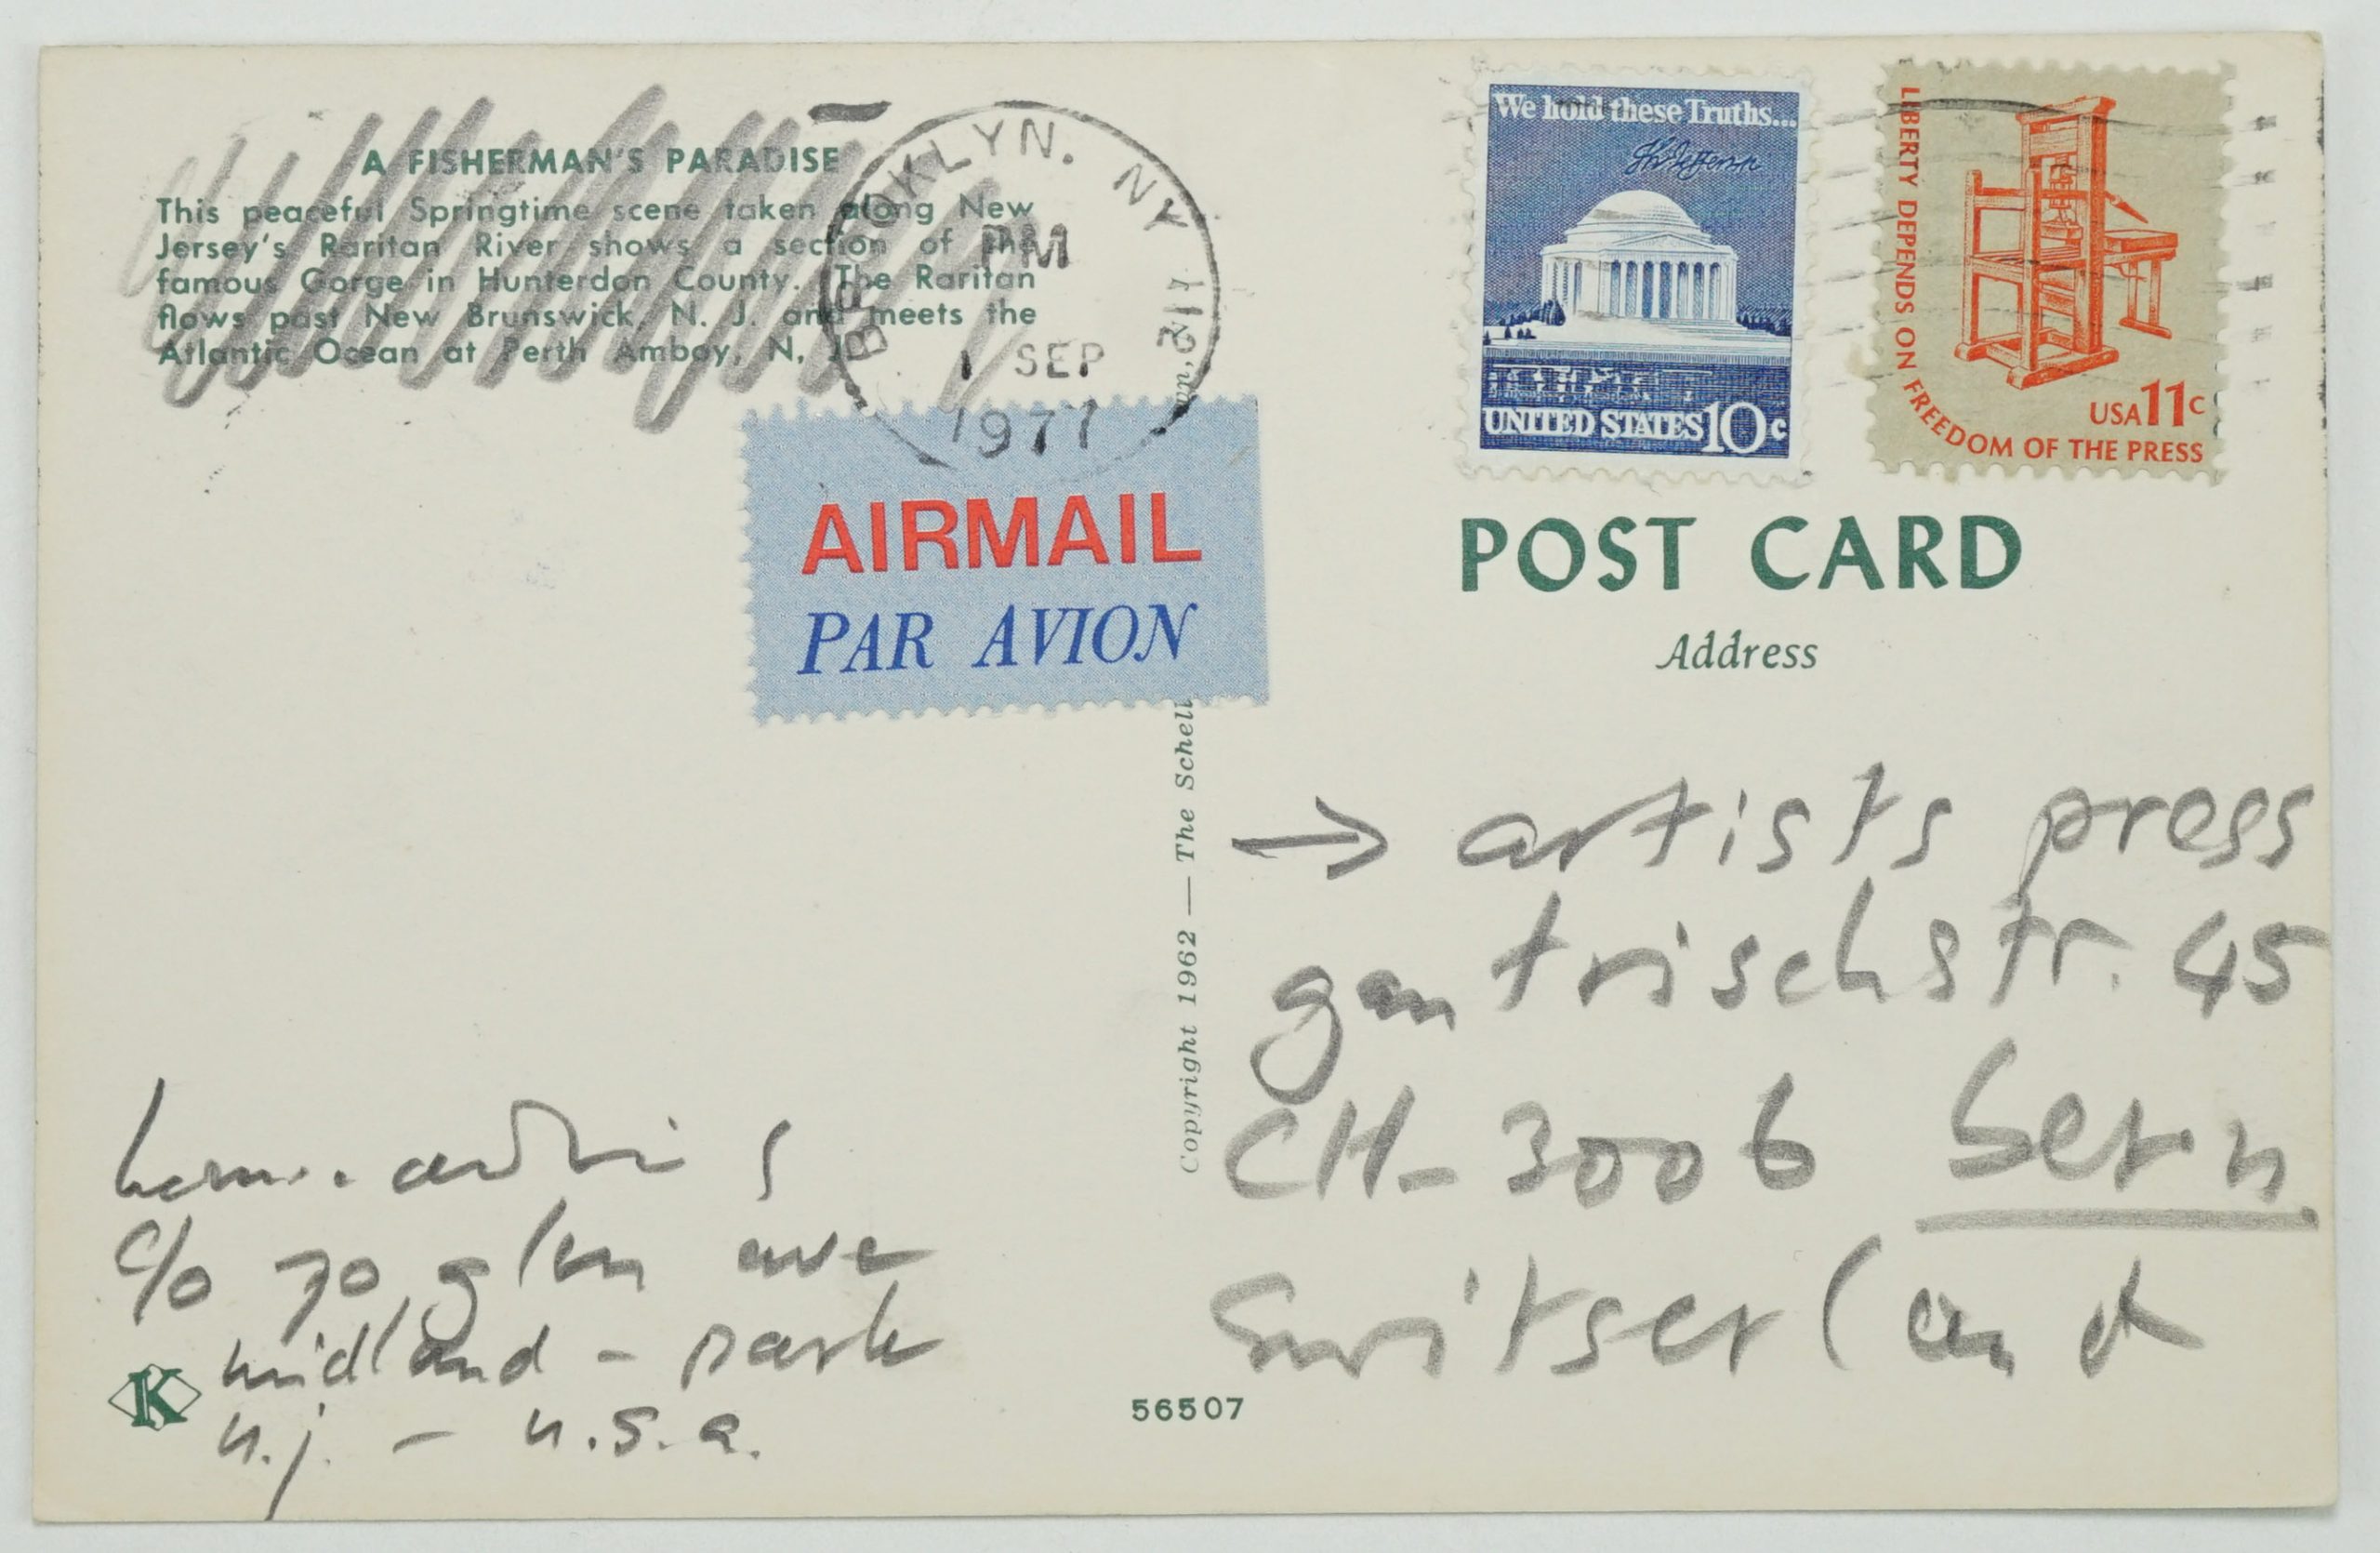 A FISHERMAN'S PARADISE
This peaceful Springtime scene taken along New
Jersey's Raritan River shows a section of the
famous Gorge in Hunterdon County. The Raritan
flows past New Brunswick, N. J. and meets the
Atlantic Ocean at Perth Amboy, N. J.
BROOKLYN. NY
PM
1 SEP
1977
AIRMAIL
PAR AVION
We hold these Truths...
Th Jefferson
UNITED STATES 10c
LIBERTY DEPENDS ON FREEDOM OF THE PRESS
USA 11c
POST CARD
Address
Copyright 1962 — The Schell
→ artists press
gantrischstr. 45
CH-3006 bern
Switserland
c/o 70 glen ave
midland - park
n.j. - u.s.a.
K
56507